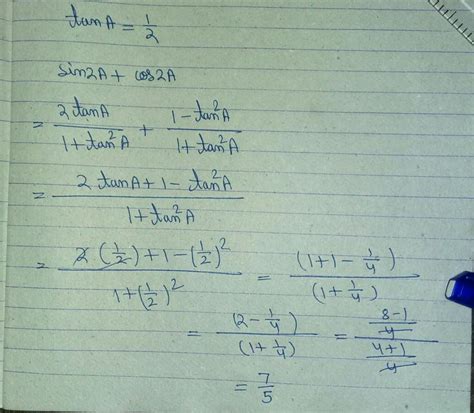 tanA = 1/2
sin2A + cos2A
= 2tanA/(1+tan²A) + (1-tan²A)/(1+tan²A)
= (2tanA+1-tan²A)/(1+tan²A)
= (2(1/2)+1-(1/2)²)/(1+(1/2)²) = (1+1-1/4)/(1+1/4)
= (2-1/4)/(1+1/4) = ((8-1)/4)/((4+1)/4)
= 7/5